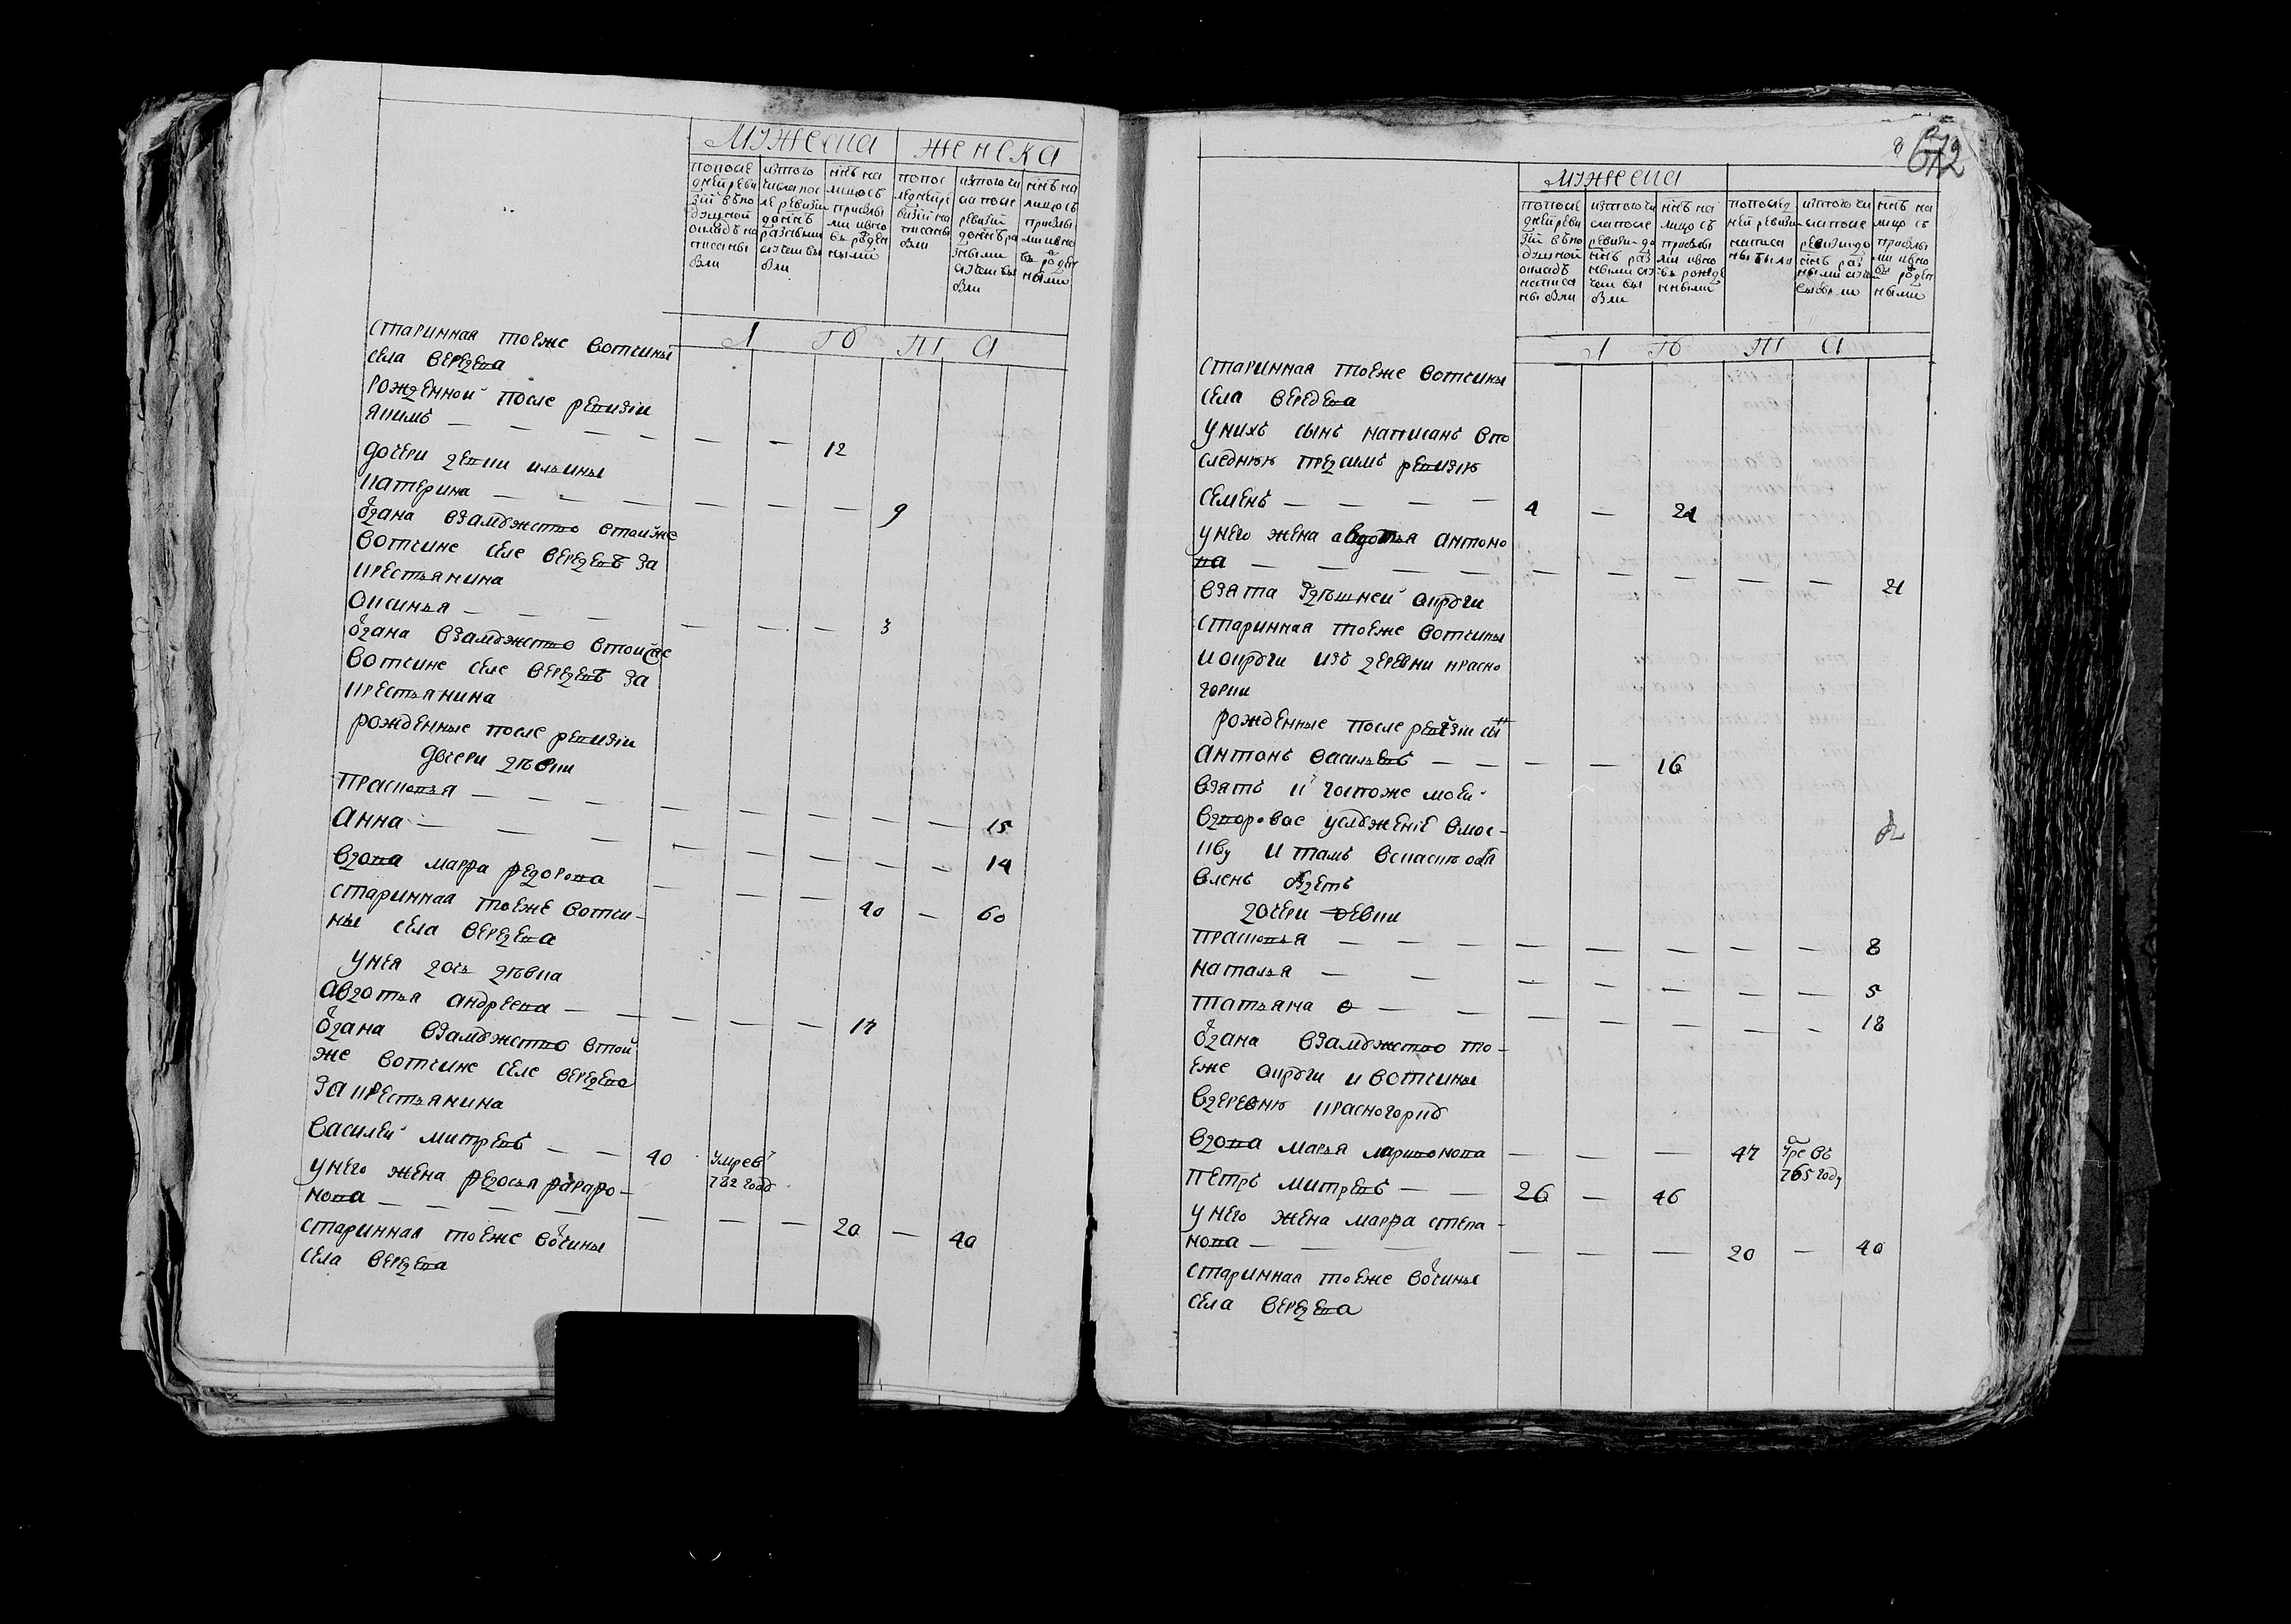 мужеска женска
попосле
дней реви
зіи вѣпо
душной
окладъ на
писаны
были
изтого
числа пос
ле ревизіи
донне
разными
случаи вы
были
нне на
лицо съ
прибылы
ми ивно
въ рожден
ными
попос
ледней ре
визіи на
писаны
были
изтого чи
сла после
ревизіи
донне ра
зными
случаи вы
были
нне на
лицо съ
прибылы
ми ивно
въ рожден
ными
Л ѣ т а
старинная тоеже вотчины
села берез ева
рожденной после ревизіи
якимъ — — — — — — 12
дочери девки ильины
катерина — — — — — — 9
отдана взамужство втойже
вотчине селе березевѣ за
крестьянина
оксинья — — — — — 3
отдана взамужство втойже
вотчине селе березевѣ за
крестьянина
рожденные после ревизіи
дочери дѣвки
прасковья — — — — — — — — 15
анна — — — — — — — — 14
вдова марфа федорова — — — 40 — 60
старинная тоеже вотчи-
ны села березева
унея дочь дѣвка
авдотья андреева — — — — — 17
отдана взамужство втой
же вотчине селе березеве
за крестьянина
василей митревъ — — 40 умре в
782 году
унего жена федосья фарафо-
нова — — — — — — — 20 — 40
старинная тоеже вотчины
села березева
8
672
мужеска
попосле
дней реви
зіи вѣпо
душной
окладъ
написа
ны были
изтого чи
сла после
ревизіи до
нне раз
ными слу
чаи вы
были
нне на
лицо съ
прибылы
ми ивно
въ рожде
нными
попослед
ней ревизіи
написа
ны были
изтого чи
сла после
ревизіи до
нне раз
ными случаи
выбыли
нне на
лицо съ
прибылы
ми ивно
въ рожден
ными
Л ѣ т а
старинная тоеже вотчины
села березева
унихъ сынъ написанъ впо
следнюю предсимъ ревизію
семенъ — — — — 4 — 24
унего жена авдотья антоно
ва — — — — — — — — — 21
взята здѣшней округи
старинная тоеже вотчины
иокруги изъ деревни красно
горки
рожденные после ревизіи сы
антонъ васильевъ — — — — 16
взятъ к госпоже моей
вдворовое услуженіе вмос-
кву и тамъ вспаскѣ объя
вленъ будетъ
дочери девки
прасковья — — — — — — — — 8
наталья — — — — — — — 5
татьяна — — — — — — — 18
отдана взамужство то-
еже округи и вотчины
вдеревню красногорку
вдова марья ларионова — — — 47 умре въ
765 году
петръ митревъ — — 26 — 46
унего жена марфа степа-
нова — — — — — — 20 — 40
старинная тоеже вотчины
села березева